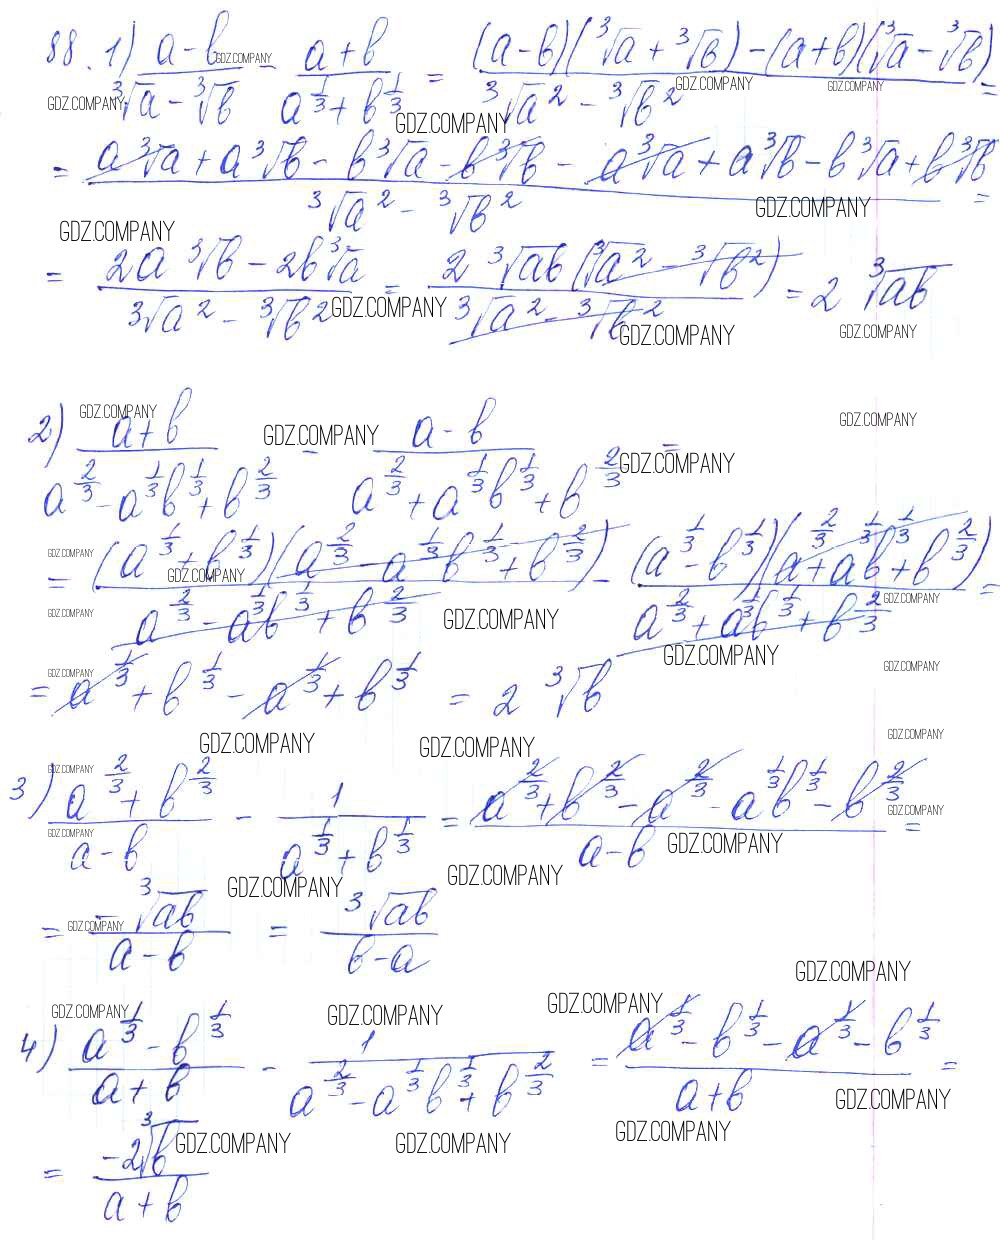 88. 1) (a-b)/(∛a - ∛b) - (a+b)/(a^(1/3) + b^(1/3)) = ((a-b)(∛a + ∛b) - (a+b)(∛a - ∛b))/(∛a² - ∛b²) =
= (a∛a + a∛b - b∛a - b∛b - a∛a + a∛b - b∛a + b∛b)/(∛a² - ∛b²) =
= (2a∛b - 2b∛a)/(∛a² - ∛b²) = (2∛ab(∛a² - ∛b²))/(∛a² - ∛b²) = 2∛ab
2) (a+b)/(a^(2/3) - a^(1/3)b^(1/3) + b^(2/3)) - (a-b)/(a^(2/3) + a^(1/3)b^(1/3) + b^(2/3)) =
= ((a^(1/3) + b^(1/3))(a^(2/3) - a^(1/3)b^(1/3) + b^(2/3)))/(a^(2/3) - a^(1/3)b^(1/3) + b^(2/3)) - ((a^(1/3) - b^(1/3))(a^(2/3) + a^(1/3)b^(1/3) + b^(2/3)))/(a^(2/3) + a^(1/3)b^(1/3) + b^(2/3)) =
= a^(1/3) + b^(1/3) - a^(1/3) + b^(1/3) = 2∛b
3) (a^(2/3) + b^(2/3))/(a-b) - 1/(a^(1/3) + b^(1/3)) = (a^(2/3) + b^(2/3) - a^(2/3) - a^(1/3)b^(1/3) - b^(2/3))/(a-b) =
= (-∛ab)/(a-b) = ∛ab/(b-a)
4) (a^(1/3) - b^(1/3))/(a+b) - 1/(a^(2/3) - a^(1/3)b^(1/3) + b^(2/3)) = (a^(1/3) - b^(1/3) - a^(1/3) - b^(1/3))/(a+b) =
= (-2∛b)/(a+b)
GDZ.COMPANY